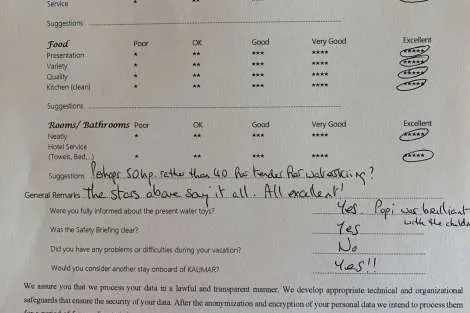 Service
Suggestions
Food Poor OK Good Very Good Excellent
Presentation * ** *** **** *****
Variety * ** *** **** *****
Quality * ** *** **** *****
Kitchen (clean) * ** *** **** *****
Suggestions
Rooms/ Bathrooms Poor OK Good Very Good Excellent
Neatly * ** *** **** *****
Hotel Service
(Towes, Bed...) * ** *** **** *****
Suggestions Perhaps 50hp rather than 40 for tender for waterskiing?
General Remarks The stars above say it all. All excellent!
Were you fully informed about the present water toys? Yes. Popi was brilliant with the children
Was the Safety Briefing clear? Yes
Did you have any problems or difficulties during your vacation? No
Would you consider another stay onboard of KALIMAR? Yes!!
We assure you that we process your data in a lawful and transparent manner. We develop appropriate technical and organizational
safeguards that ensure the security of your data. After the anonymization and encryption of your personal data we intend to process them